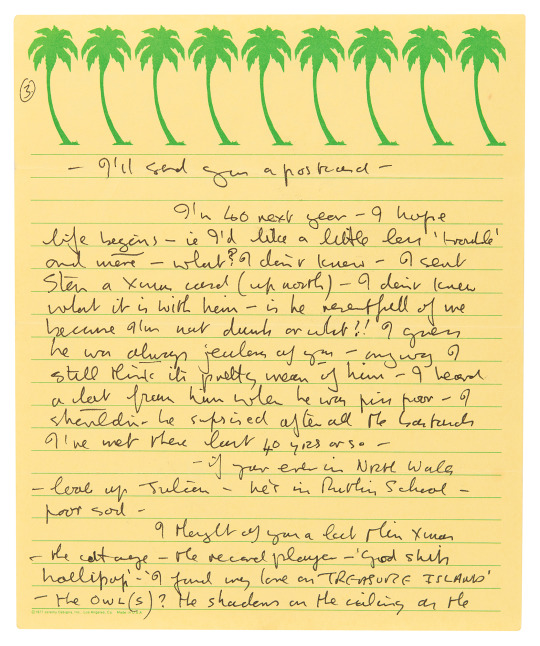 3
- I'll send you a postcard -
I'm 40 next year - I hope
life begins - ie I'd like a little less 'trouble'
and more - what? I don't know - I sent
Stan a Xmas card (up north) - I don't know
what it is with him - is he resentfull of me
because I'm not dumb or what?! I guess
he was always jealous of you - anyway I
still think its pretty mean of him - I heard
a lot from him when he was piss poor - I
shouldn- be suprised after all the bastards
I've met these last 40 yrs or so -
- if your ever in North Wales
- look up Julian - he's in Ruthin School -
poor sod -
I thought of you a lot this Xmas
- the cottage - the record player - 'Good ship
hollipop' - 'I fund my love on TREASURE ISLAND'
- the OWL(S)? the shadows on the ceiling as the